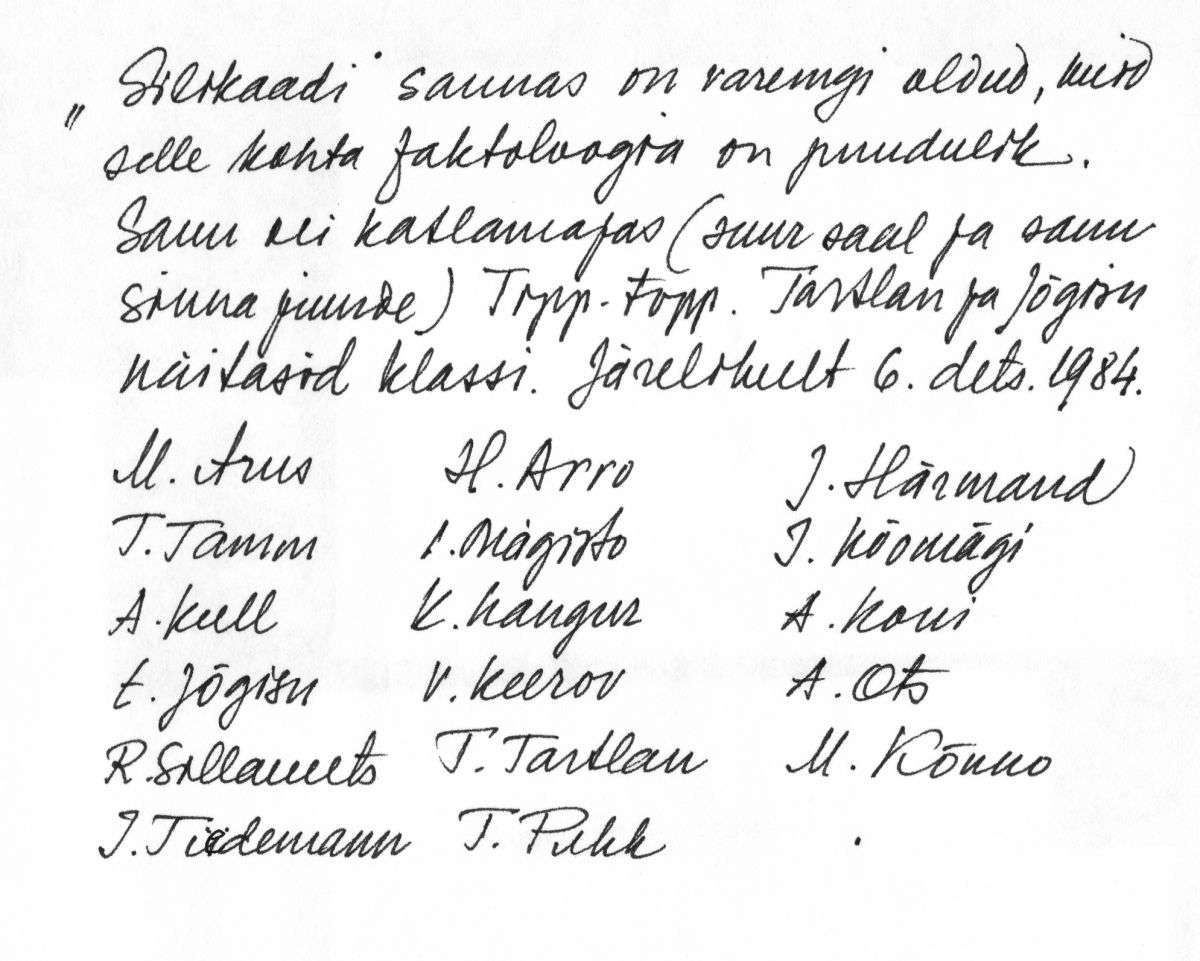 „Silikaadi" saunas on varemgi oldud, kuid
selle kohta faktoloogia on puudulik.
Saun oli katlamajas (suur saal ja saun
sinna juurde) Tipp-topp. Tartlan ja Jõgisu
näitasid klassi. Järelikult 6. dets. 1984.
M. Arus H. Arro J. Härmand
T. Tamm I. Mägisto J. Kõomägi
A. Kull K. Kangur A. Koni
E. Jõgisu V. Keerov A. Ots
R. Sillamets T. Tartlan M. Kõnno
J. Tiidemann T. Pikk